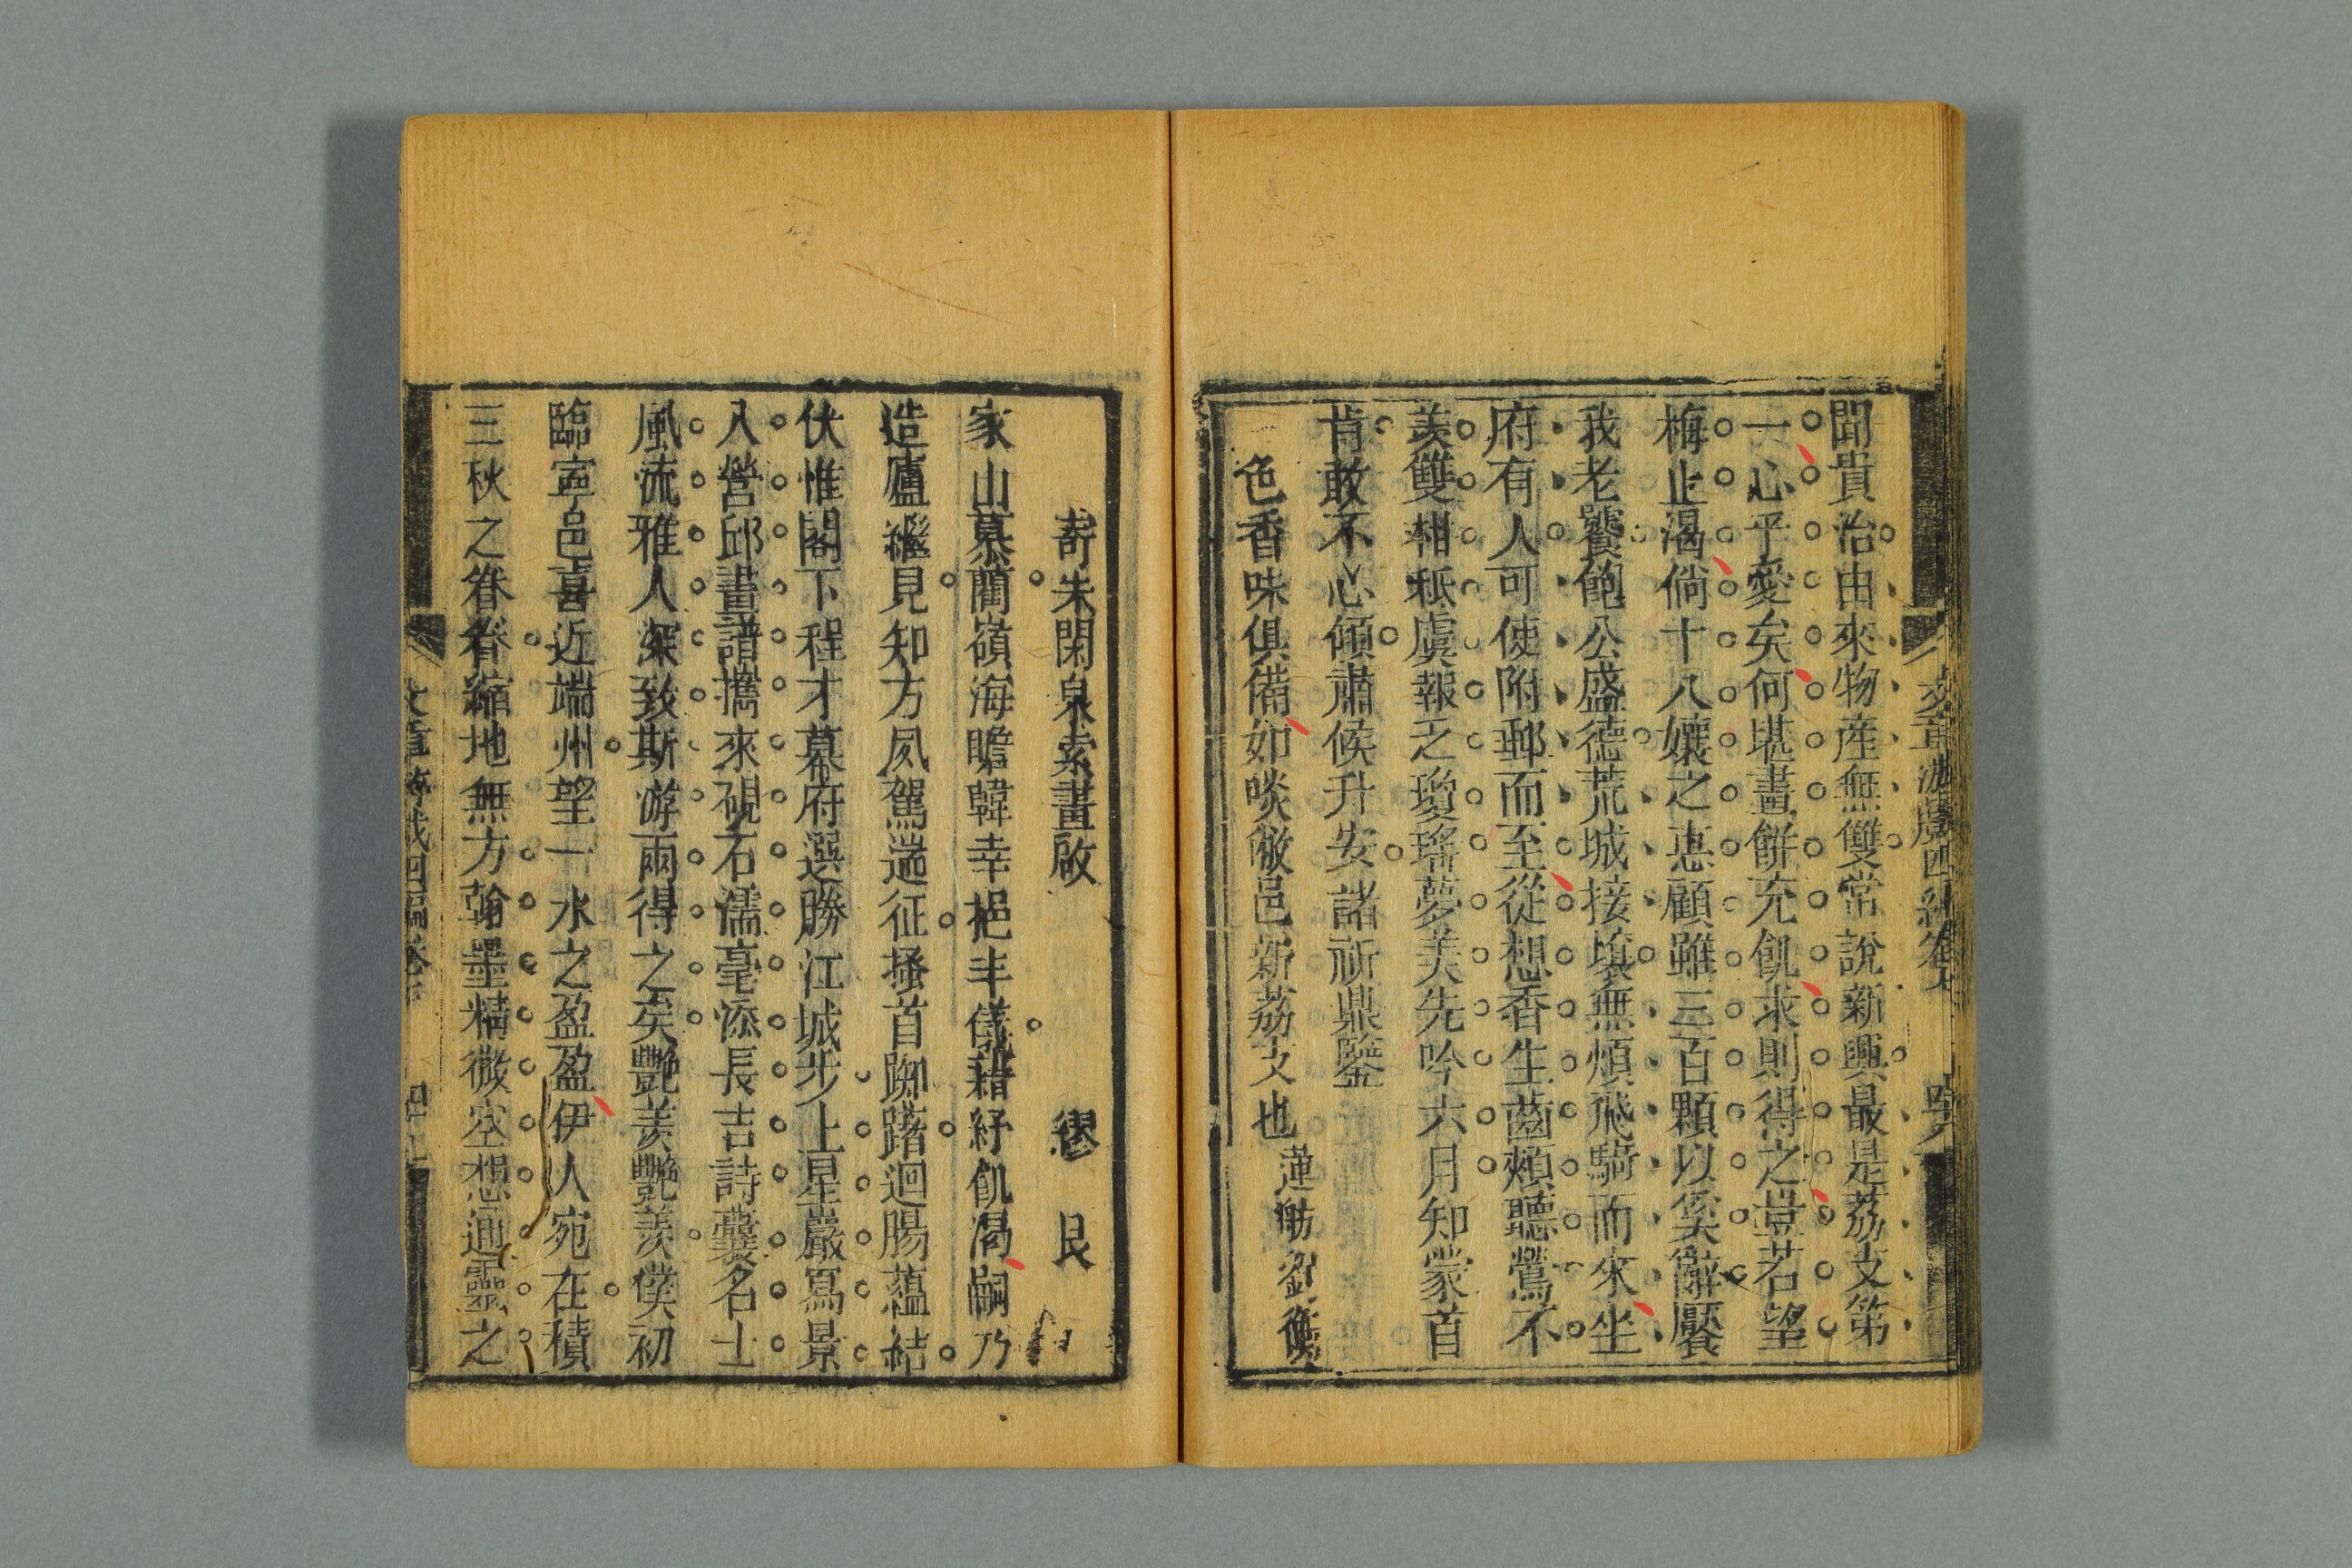 聞貴治由來物産無雙常說新興最是荔支第
一心平愛矣何堪畫餅充飢求則得之豈若望
梅止渴倘十八孃之惠顧雖三百顆以奚辭饜
我老饕飽公盛德荒城接壤無煩飛騎而來坐
府有人可使附郵而至從想香生齒頰聽鶯不
羨雙柑秪虞報乏瓊瑤夢羙先吟六月知蒙首
肯敢不心傾肅候升安諸祈鼎鑒
色香味俱備如啖敝邑新荔支也 蓮舫劉衡
寄朱閑泉索畫啟 繆艮
家山慕藺嶺海瞻韓幸挹丰儀藉紓飢渴嗣乃
造廬繼見知方夙駕遄征搔首踟躇迴腸蘊結
伏惟閣下程才幕府選勝江城步上星巖寫景
入營邱畫譜擕來硯石濡毫添長吉詩囊名士
風流雅人深致斯游兩得之矣艷羨艷羨僕初
臨寧邑喜近端州望一水之盈盈伊人宛在積
三秋之眷眷縮地無方翰墨精微空想通靈之
文章游戲四編卷六